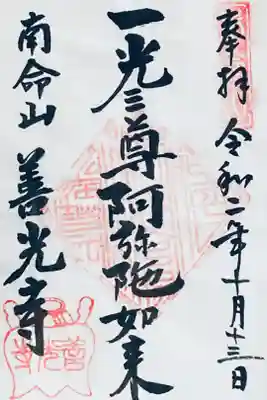 奉拝 令和二年十月十三日
一光三尊阿弥陀如来
南命山 善光寺